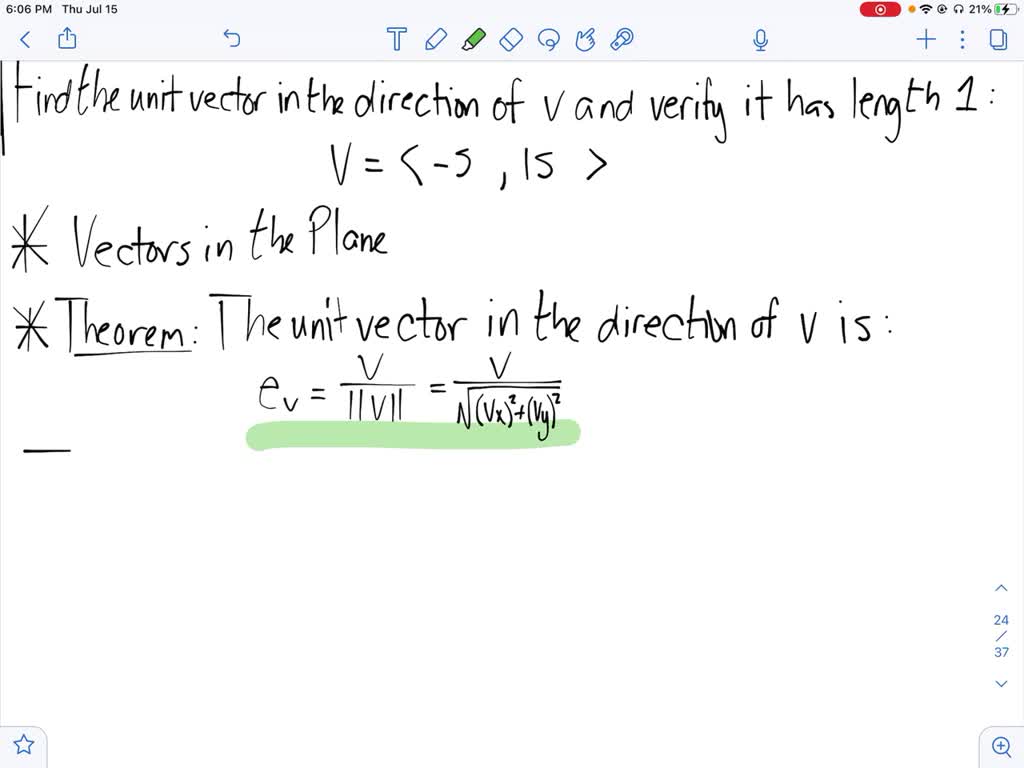 6:06 PM Thu Jul 15
21%
T
Find the unit vector in the direction of v and verify it has length 1:
V = < -5 , 15 >
* Vectors in the Plane
* Theorem: The unit vector in the direction of v is:
e_v = V / ||V|| = V / √(Vx)²+(Vy)²
24
/
37